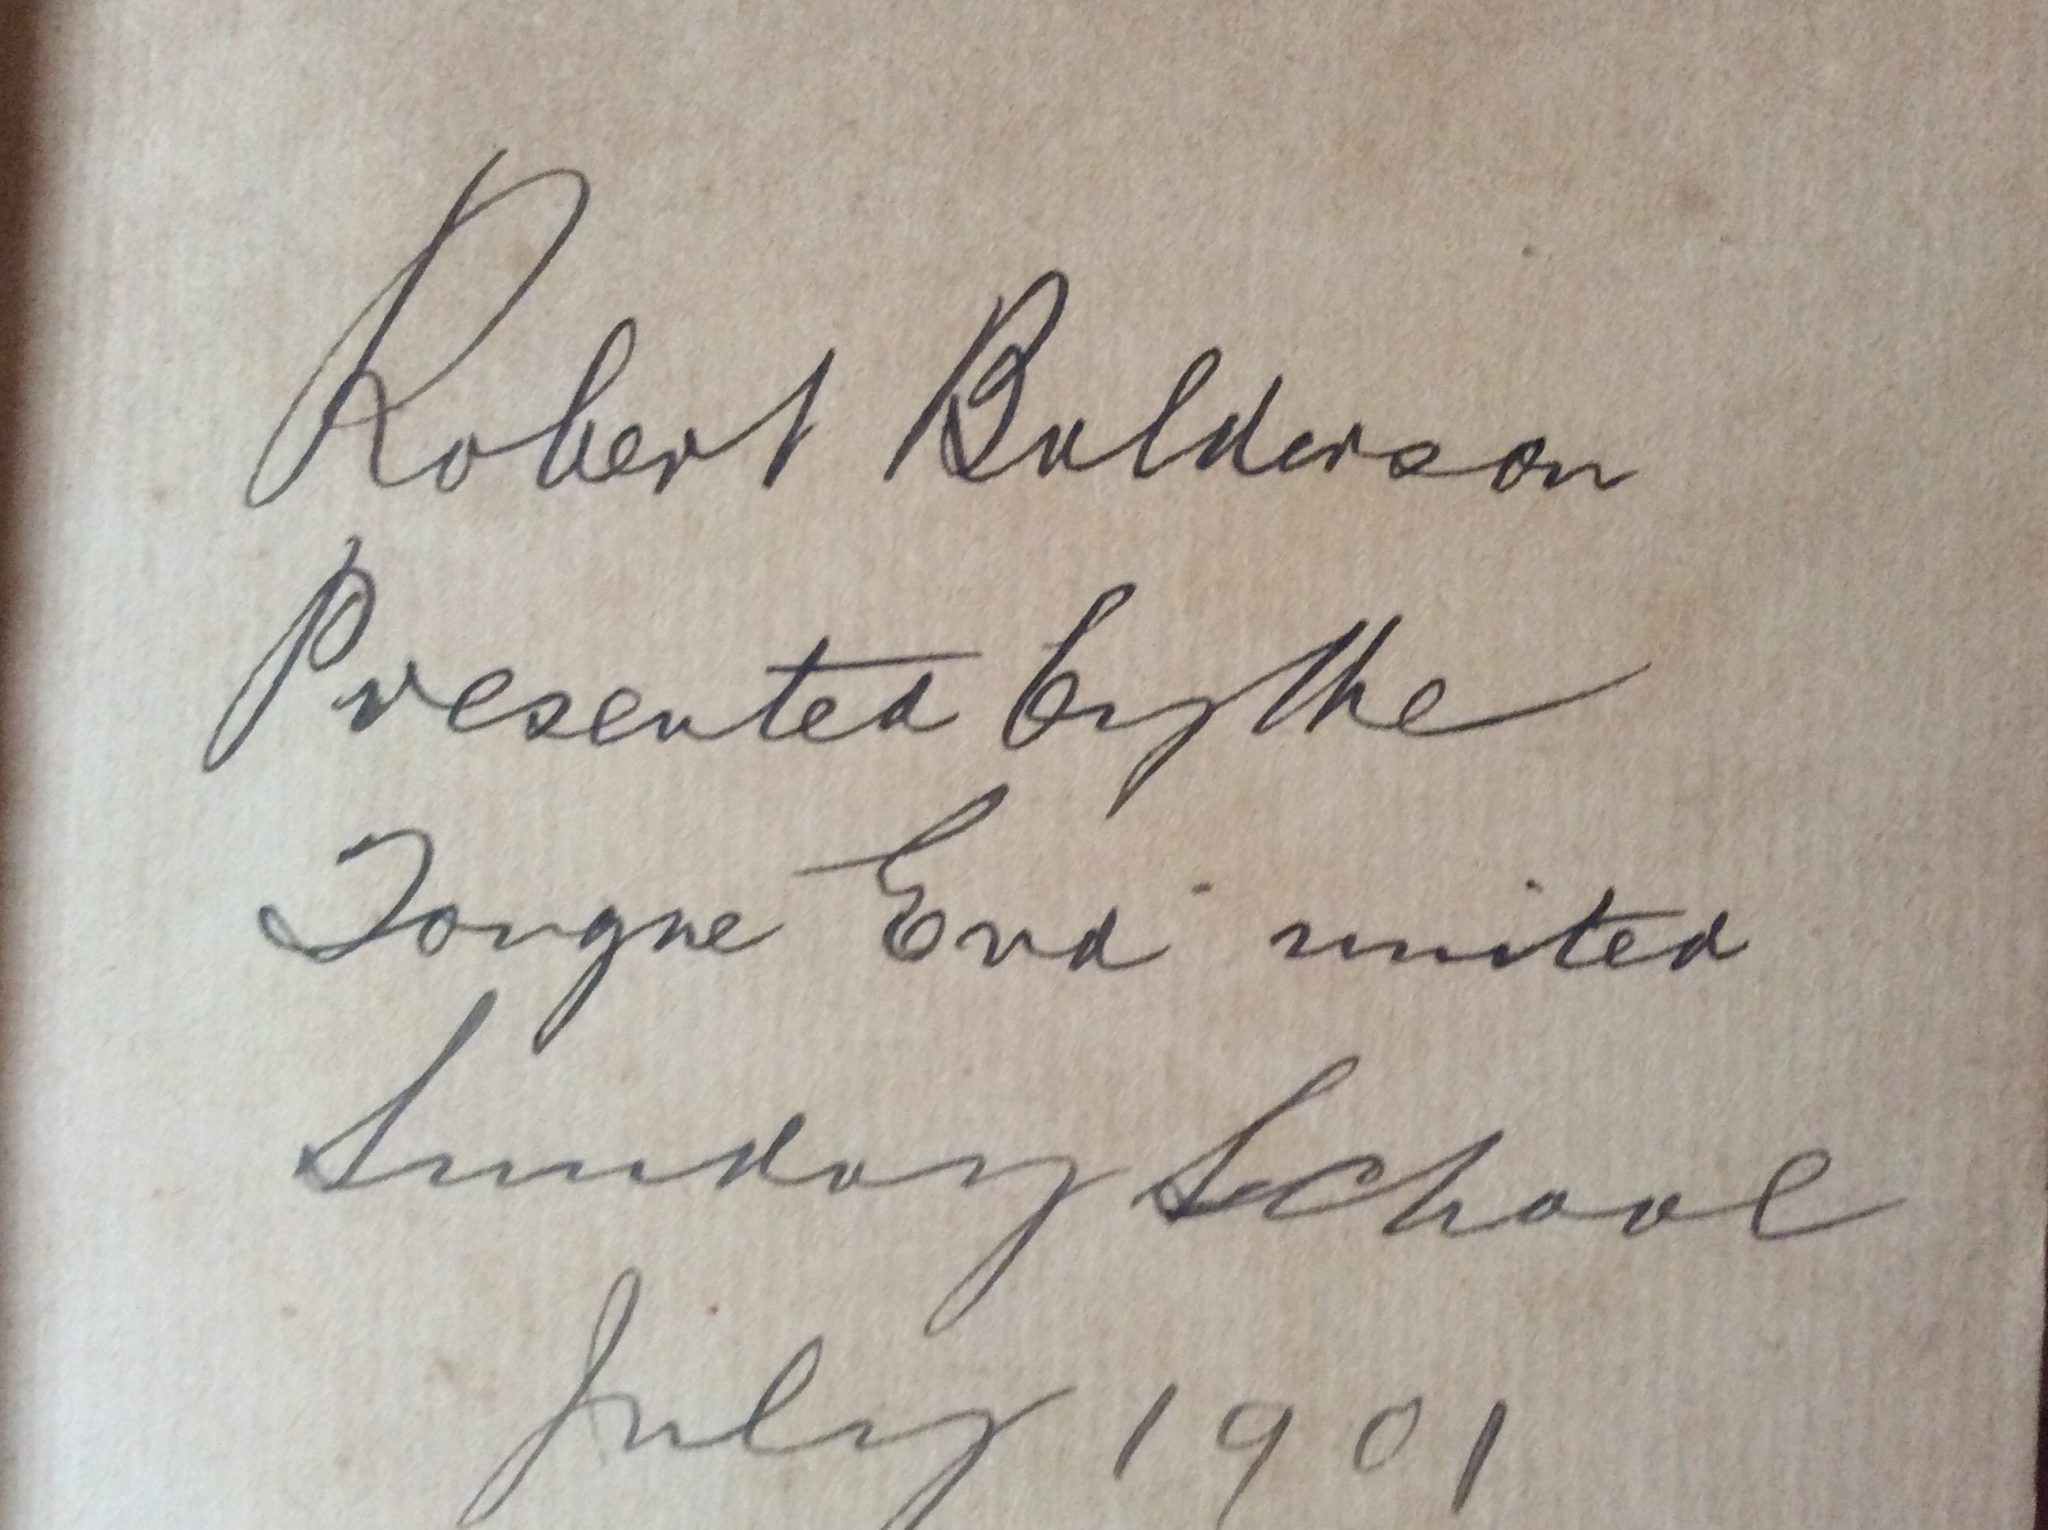 Robert Balderson
Presented by the
Tongue End united
Sunday School
July 1901